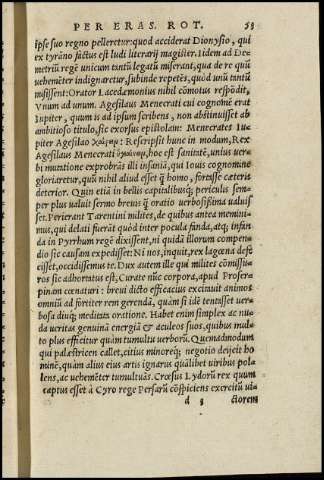 PER ERAS. ROT. 53
ipse suo regno pelleretur: quod acciderat Dionysio, qui
ex tyrāno factus est ludi literarij magister. Idem ad De
metriū regē unicum tantū legatū miserant, qua de re quū
uehemēter indignaretur, subinde repetēs, quòd unū tantū
misissent: Orator Lacedæmonius nihil cōmotus respōdit,
Vnum ad unum. Agesilaus Menecrati cui cognomē erat
Iupiter, quum is ad ipsum scribens, non abstinuisset ab
ambitioso titulo, sic exorsus epistolam: Menecrates Iu
piter Agesilao χαίρειν: Rescripsit hunc in modum, Rex
Agesilaus Menecrati ὑγιαίνειν, hoc est sanitatē, unius uer
bi mutatione exprobrās illi insaniā, qui Iouis cognomine
gloriaretur, quū nihil aliud esset q̄ homo, fortasse cæteris
deterior. Quin etiā in bellis capitalibusq; periculis sem
per plus ualuit sermo breuis q̄ oratio uerbosissima ualuis
set. Perierant Tarentini milites, de quibus antea memini
mus, qui delati fuerāt quòd inter pocula fanda, atq; infan
da in Pyrrhum regē dixissent, ni quidā illorum compen
dio sic causam expedisset: Ni nos, inquit, rex lagœna defe
cisset, occidissemus te. Dux autem ille qui milites cōmissu
ros sic adhortatus est, Curate nūc corpora, apud Proser
pinam cœnaturi: breui dicto efficacius excitauit animos
omniū ad fortiter rem gerendā, quàm si idē tentasset uer
bosa diuq; meditata oratione. Habet enim simplex ac nu
da ueritas genuinā energiā & aculeos suos, quibus mul
to plus efficitur quàm tumultu uerborū. Quemadmodum
qui palæstricen callet, citius minoreq; negotio deijcit ho
minē, quàm alius eius artis ignarus quālibet uiribus pol
lens, ac uehemēter tumultuās. Crœsus Lydorū rex quum
captus esset à Cyro rege Persarū cōspiciens exercitū ui-
d 3 ctorem